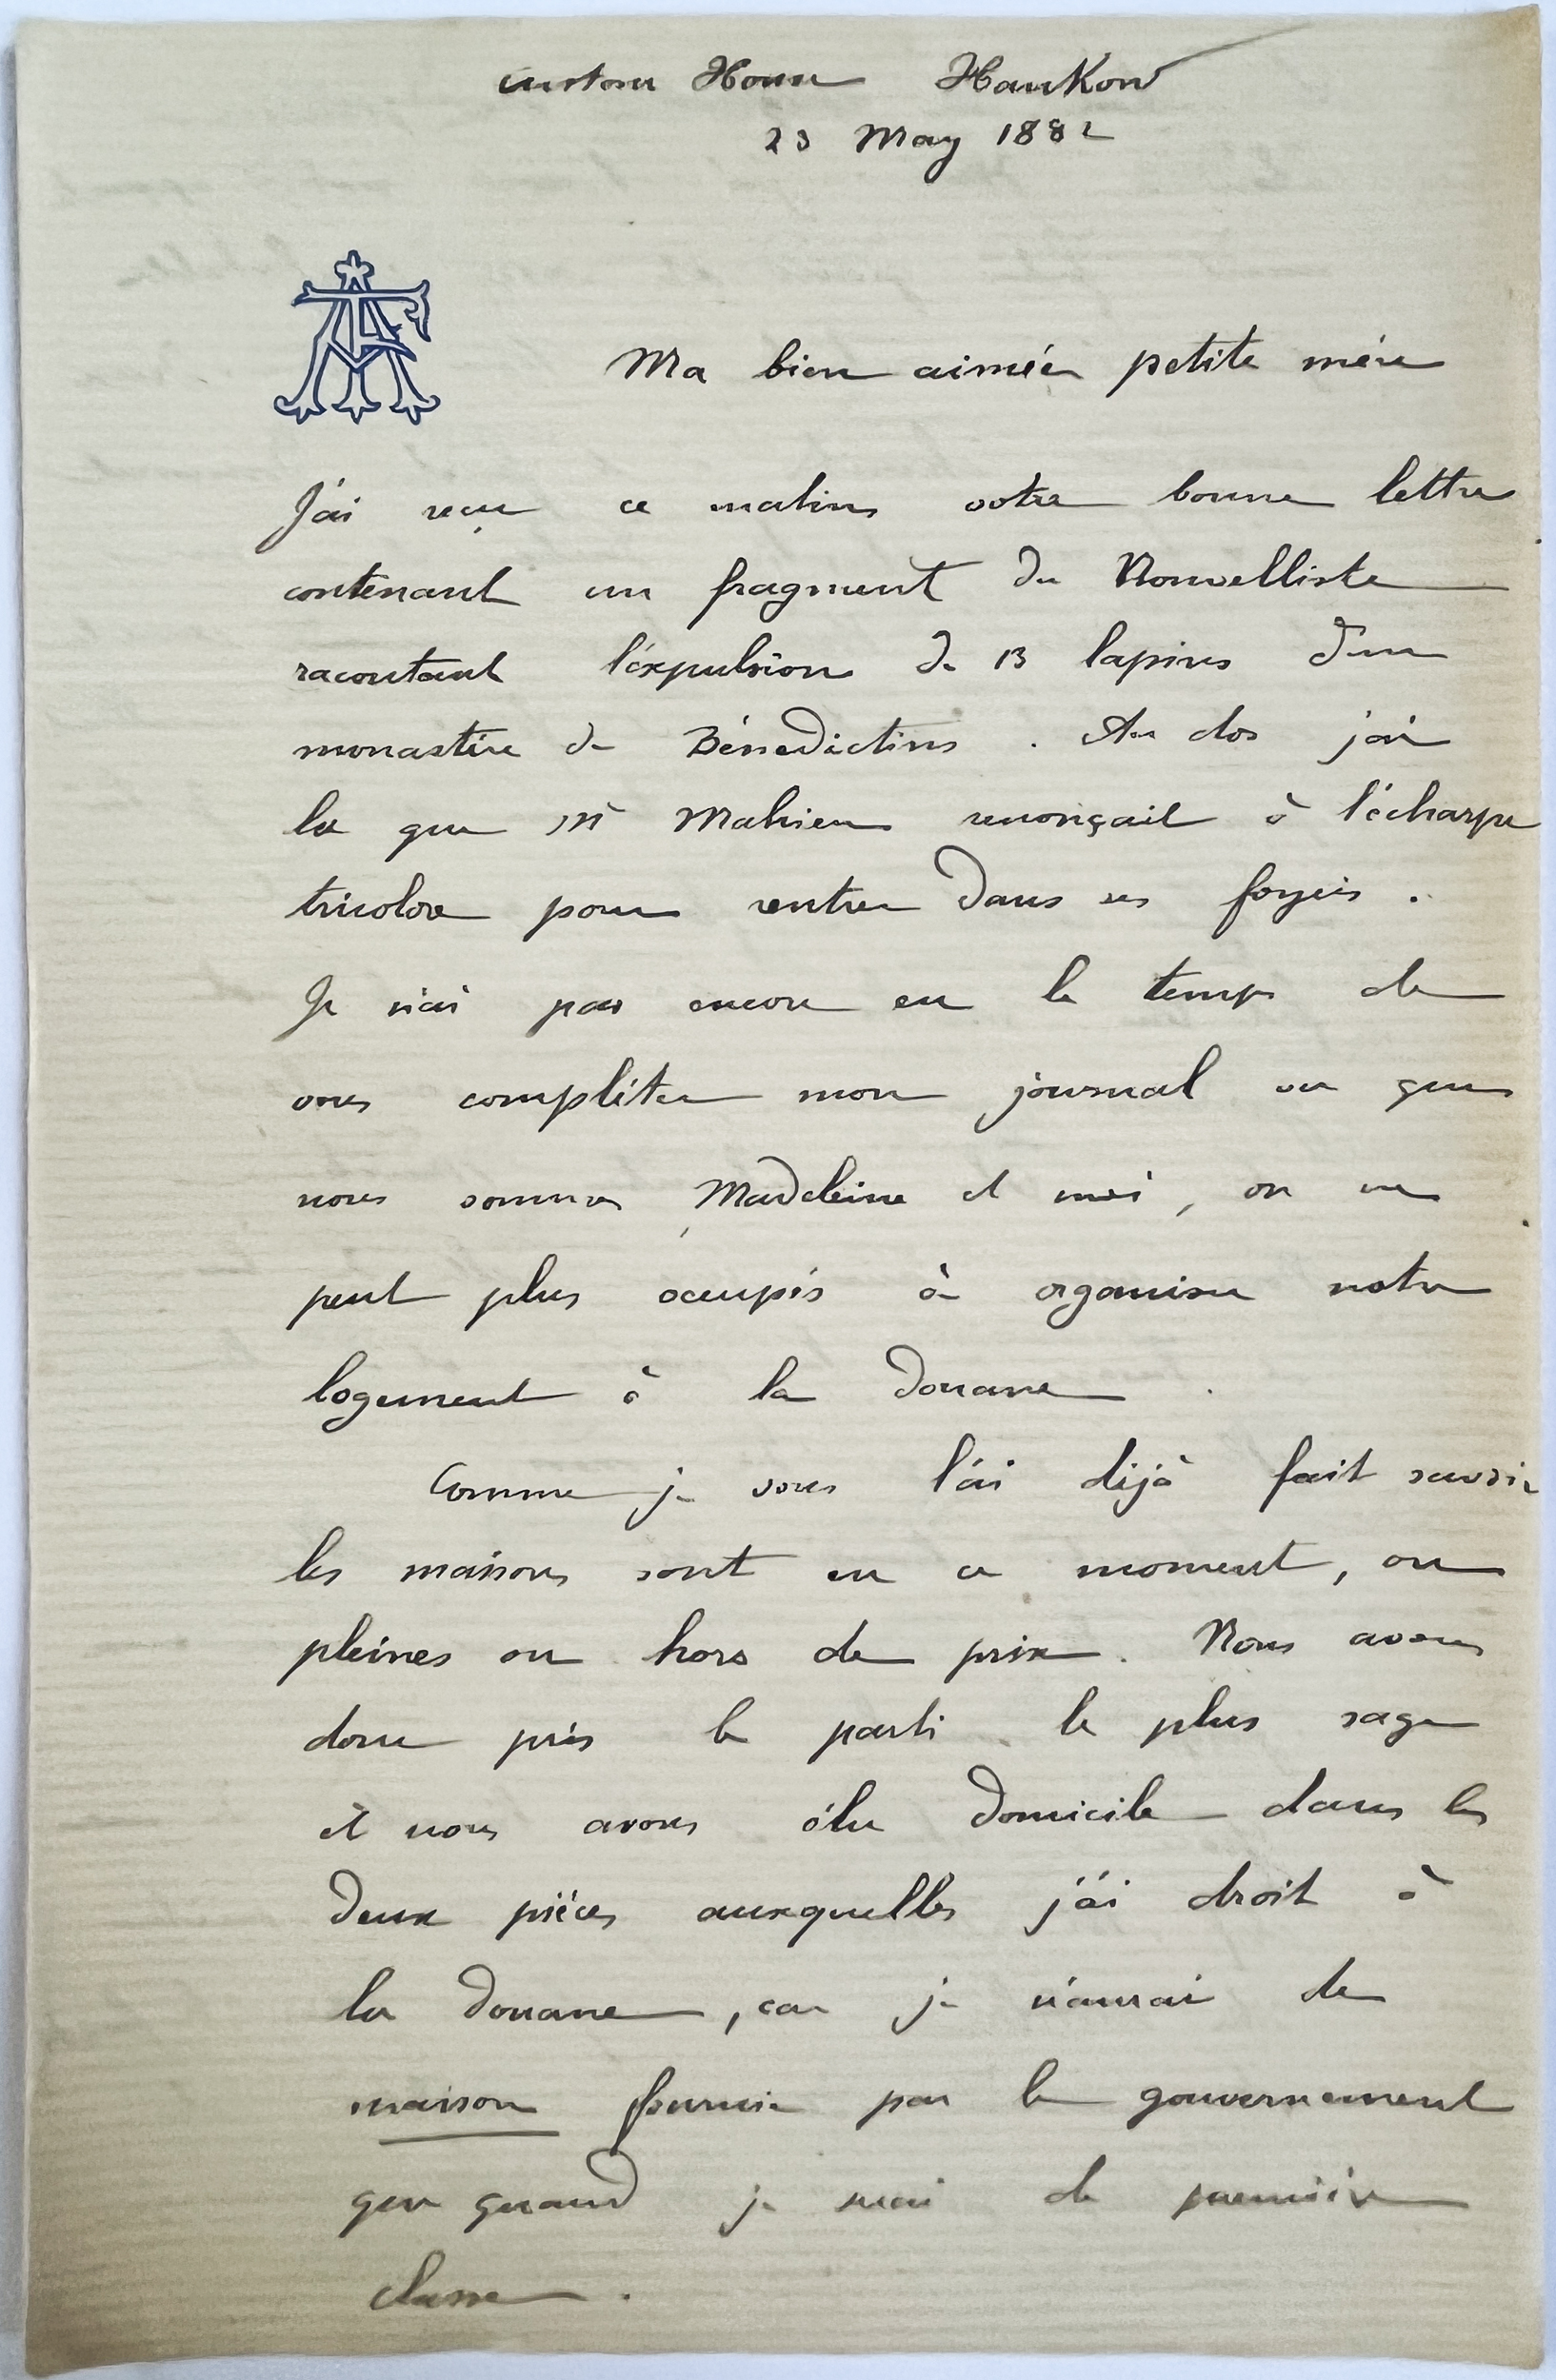 Custom House Hankow
23 May 1882
AF
Ma bien aimée petite mère
J'ai reçu ce matin votre bonne lettre
contenant un fragment du Nouvelliste
racontant l'éxpulsion de 13 lapins d'un
monastère de Bénédictins . Au dos j'ai
lu que Mr Mahieu renonçait à l'écharpe
tricolore pour rentrer dans ses foyers .
Je n'ai pas encore eu le temps de
vous compléter mon journal vu que
nous sommes , Madeleine et moi , on ne
peut plus occupés à organiser notre
logement à la Douane .
Comme je vous l'ai déjà fait savoir
les maisons sont en ce moment , ou
pleines ou hors de prix . Nous avons
donc pris le parti le plus sage
et nous avons élu domicile dans les
deux pièces auxquelles j'ai droit à
la Douane , car je n'aurai de
maison fournie par le gouvernement
que quand je serai de première
classe .